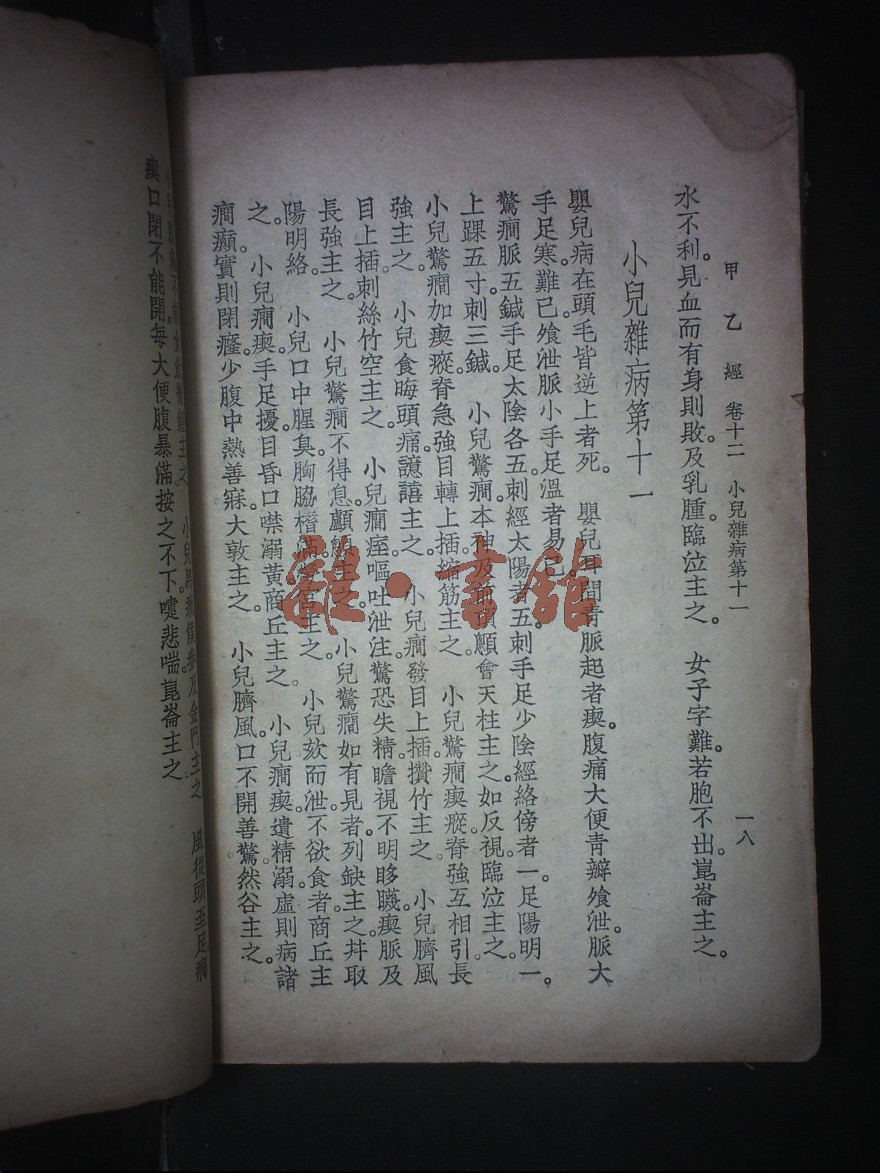 甲乙經 卷十二 小兒雜病第十一 一八
水不利。見血而有身則敗。及乳腫。臨泣主之。 女子字難。若胞不出。崑崙主之。
小兒雜病第十一
嬰兒病在頭毛皆逆上者死。 嬰兒耳間青脈起者瘈。腹痛大便青瓣飧泄。脈大
手足寒。難已。飧泄脈小手足溫者易已。
驚癎脈五。鍼手足太陰各五。刺經太陽者五。刺手足少陰經絡傍者一。足陽明一。
上踝五寸。刺三鍼。 小兒驚癎。本神及前頂顖會天柱主之。如反視。臨泣主之。
小兒驚癎加瘈瘲。脊急強。目轉上插。縮筋主之。 小兒驚癎瘈瘲。脊強互相引。長
強主之。 小兒食晦頭痛。譩譆主之。 小兒癎發目上插。攢竹主之。 小兒臍風
目上插。刺絲竹空主之。 小兒癎痓嘔吐泄注。驚恐失精。瞻視不明眵䁾。瘈脈及
長強主之。 小兒驚癎不得息。顱顖主之。 小兒驚癎如有見者。列缺主之。幷取
陽明絡。 小兒口中腥臭。胸脇榰滿。勞宮主之。 小兒欬而泄。不欲食者。商丘主
之。 小兒癎瘈。手足擾。目昏口噤溺黃。商丘主之。 小兒癎瘈。遺精溺。虛則病諸
癎癲。實則閉癃。少腹中熱善寐。大敦主之。 小兒臍風。口不開善驚。然谷主之。
主之。 小兒馬癎。僕參及金門主之。 風從頭至足癎
瘈。口閉不能開。每大便腹暴滿。按之不下。嚏悲喘。崑崙主之。
雅·書館